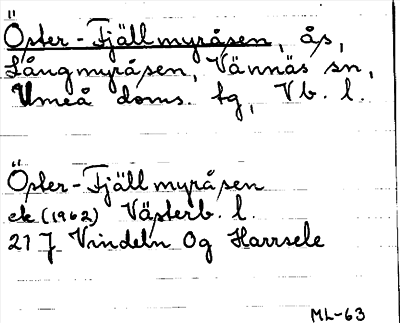 Öster-Fjällmyråsen, ås,
Långmyråsen, Vännäs sn,
Umeå doms. tg, Vb. l.
Öster-Fjällmyråsen
ek (1962) Västerb. l.
21 J Vindeln Og Harrsele
ML-63